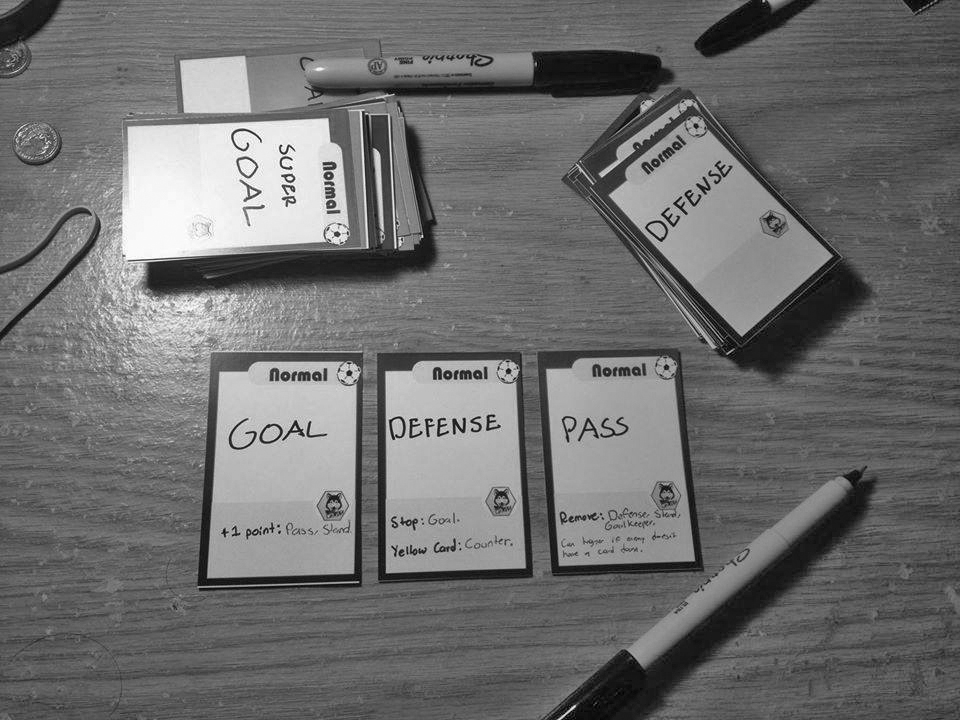 Sharpie
FINE POINT
AP
Normal
SUPER
GOAL
Normal
Normal
DEFENSE
Normal
GOAL
+1 point: Pass, Stand
Normal
DEFENSE
Stop: Goal.
Yellow Card: Counter.
Normal
PASS
Remove: Defense, Stand,
Goalkeeper.
Can trigger if enemy doesn't
have a card down.
Sharpie